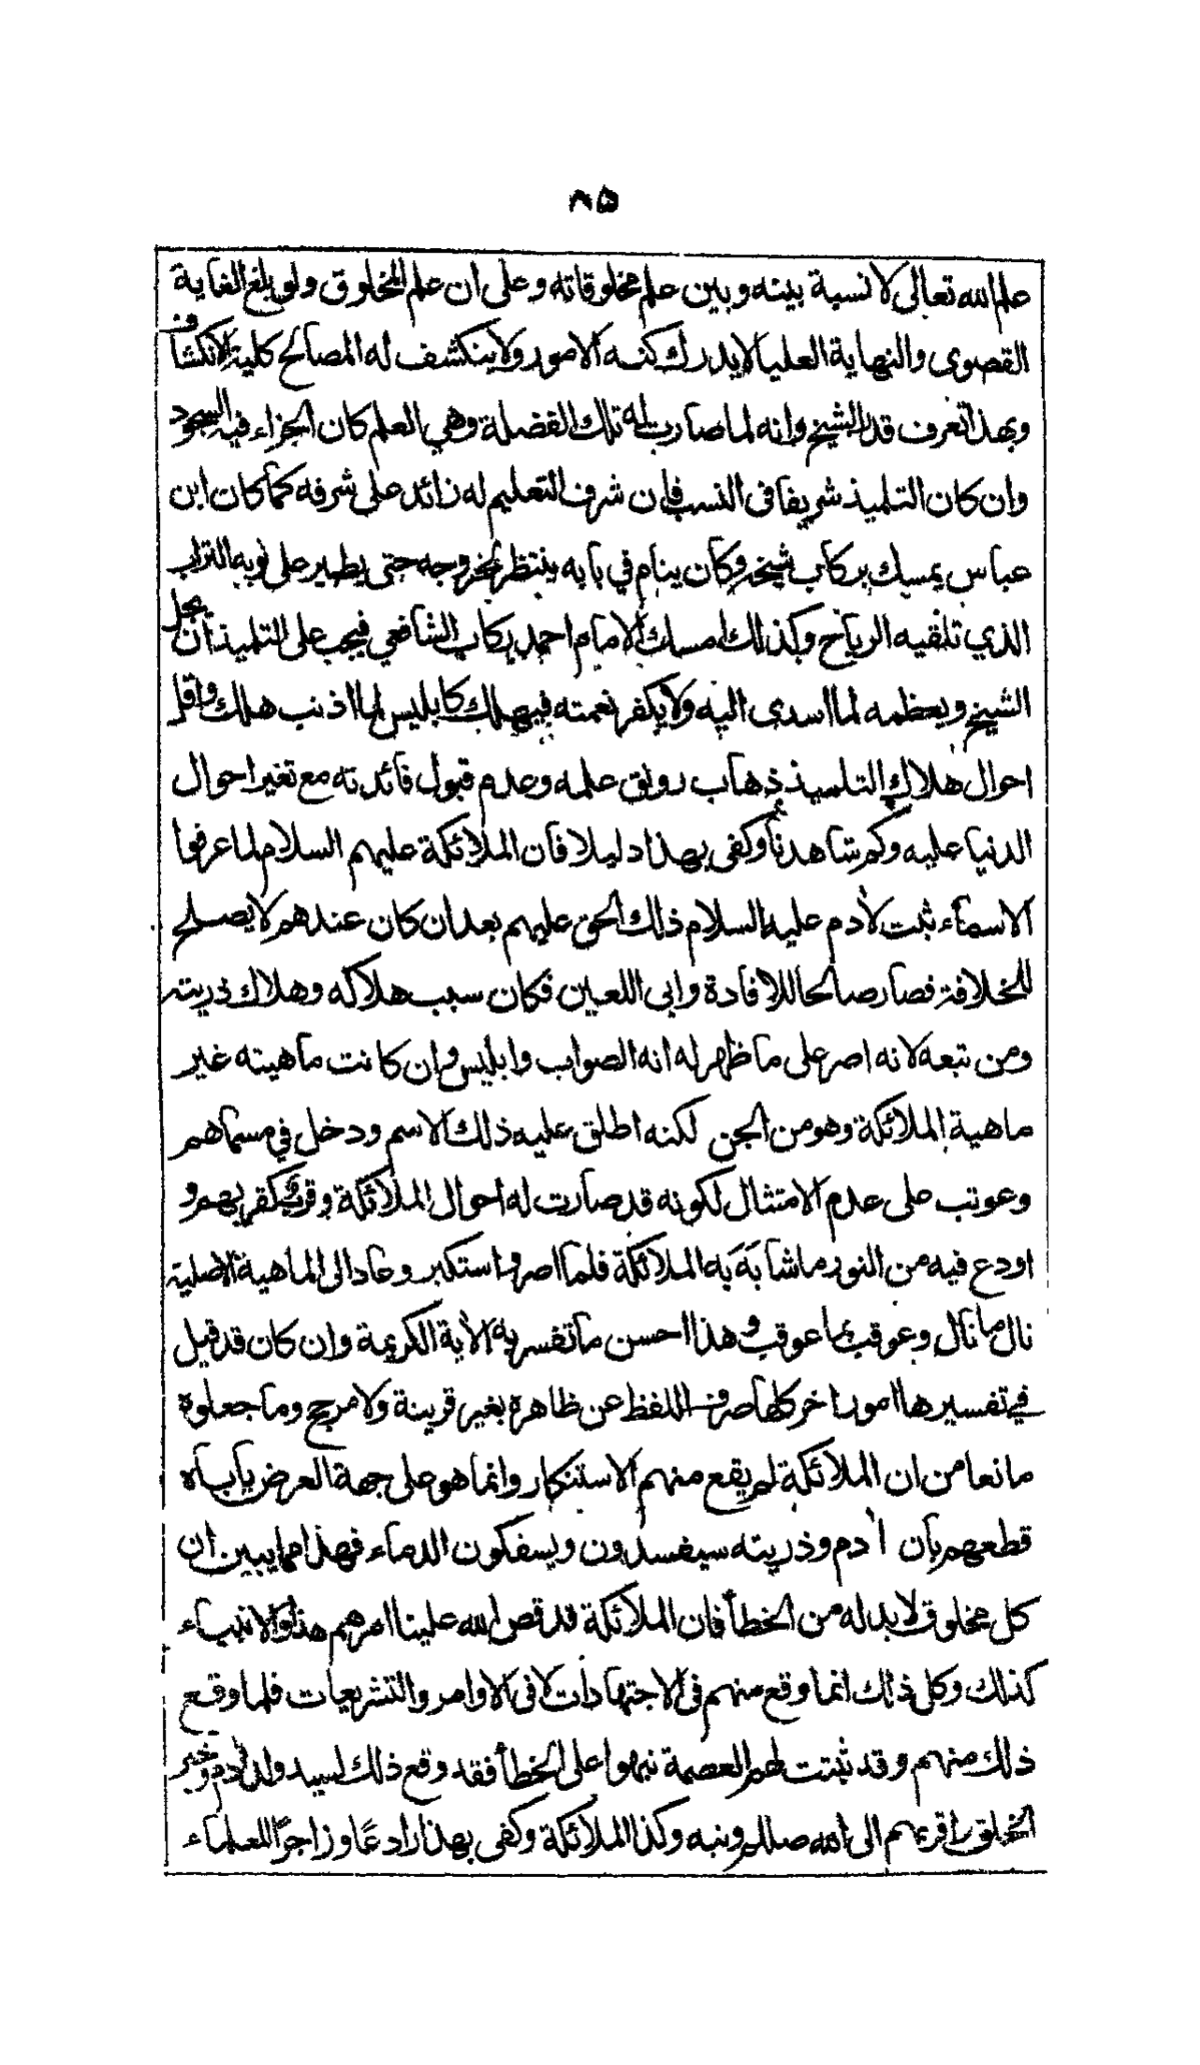 ۸۵
علم الله تعالى لا نسبة بينه وبين علم مخلوقاته وعلى ان علم المخلوق ولو بلغ الغاية
القصوى والنهاية العليا لا يدرك كنه الامور ولا ينكشف له المصالح كلية الانكشاف
وبهذا تعرف قدر الشيخ وانه لما صارت له تلك الفضلة وهي العلم كان الجزاء فيه السجود
وان كان التلميذ شريفا فى النسب فان شرف التعليم له زائد على شرفه كما كان ابن
عباس يمسك بركاب شيخه وكان ينام في بابه ينتظر لخروجه حتى يطير على ثوبه التراب
الذي تلقيه الرياح وكذلك امساك الامام احمد بركاب الشافعي فيجب على التلميذ أن يجل
الشيخ ويعظمه لما اسدى اليه ولا يكفر نعمته فيهلك كابليس لما اذنب هلك واقل
احوال هلاك التلميذ ذهاب رونق علمه وعدم قبول فائدته مع تغير احوال
الدنيا عليه وكم شاهدنا وكفى بهذا دليلا فان الملائكة عليهم السلام لما عرفوا
الاسماء ثبت لأدم عليه السلام ذلك الحق عليهم بعد ان كان عندهم لا يصلح
للخلافة فصار صالحا للافادة وابى اللعين فكان سبب هلاكه وهلاك ذريته
ومن تبعه لانه اصر على ما ظهر له انه الصواب وابليس وان كانت ماهيته غير
ماهية الملائكة وهو من الجن لكنه اطلق عليه ذلك الاسم ودخل في مسماهم
وعوتب على عدم الامتثال لكونه قد صارت له احوال الملائكة وقرب كقربهم و
اودع فيه من النور ما شابَهَ به الملائكة فلما اصر واستكبر وعاد الى الماهية الاصلية
نال ما نال وعوقب بما عوقب وهذا احسن ما تفسر به الأية الكريمة وان كان قد قيل
في تفسيرها امور اخر كلها صرف اللفظ عن ظاهره بغير قرينة ولا مرجح وما جعلوه
مانعا من ان الملائكة لم يقع منهم الاستنكار وانما هو على جهة العرض يأباه
قطعهم بان أدم وذريته سيفسدون ويسفكون الدماء فهذا مما يبين ان
كل مخلوق لا بد له من الخطأ فان الملائكة قد قص الله علينا امرهم هذا والانبياء
كذلك وكل ذلك انما وقع منهم فى الاجتهادات لا فى الاوامر والتشريعات فلما وقع
ذلك منهم وقد ثبتت لهم العصمة نبهوا على الخطأ فقد وقع ذلك لسيد ولد أدم وخير
الخلق واقربهم الى الله صللم ونبه وكذا الملائكة وكفى بهذا رادعًا وزاجرًا للعلماء